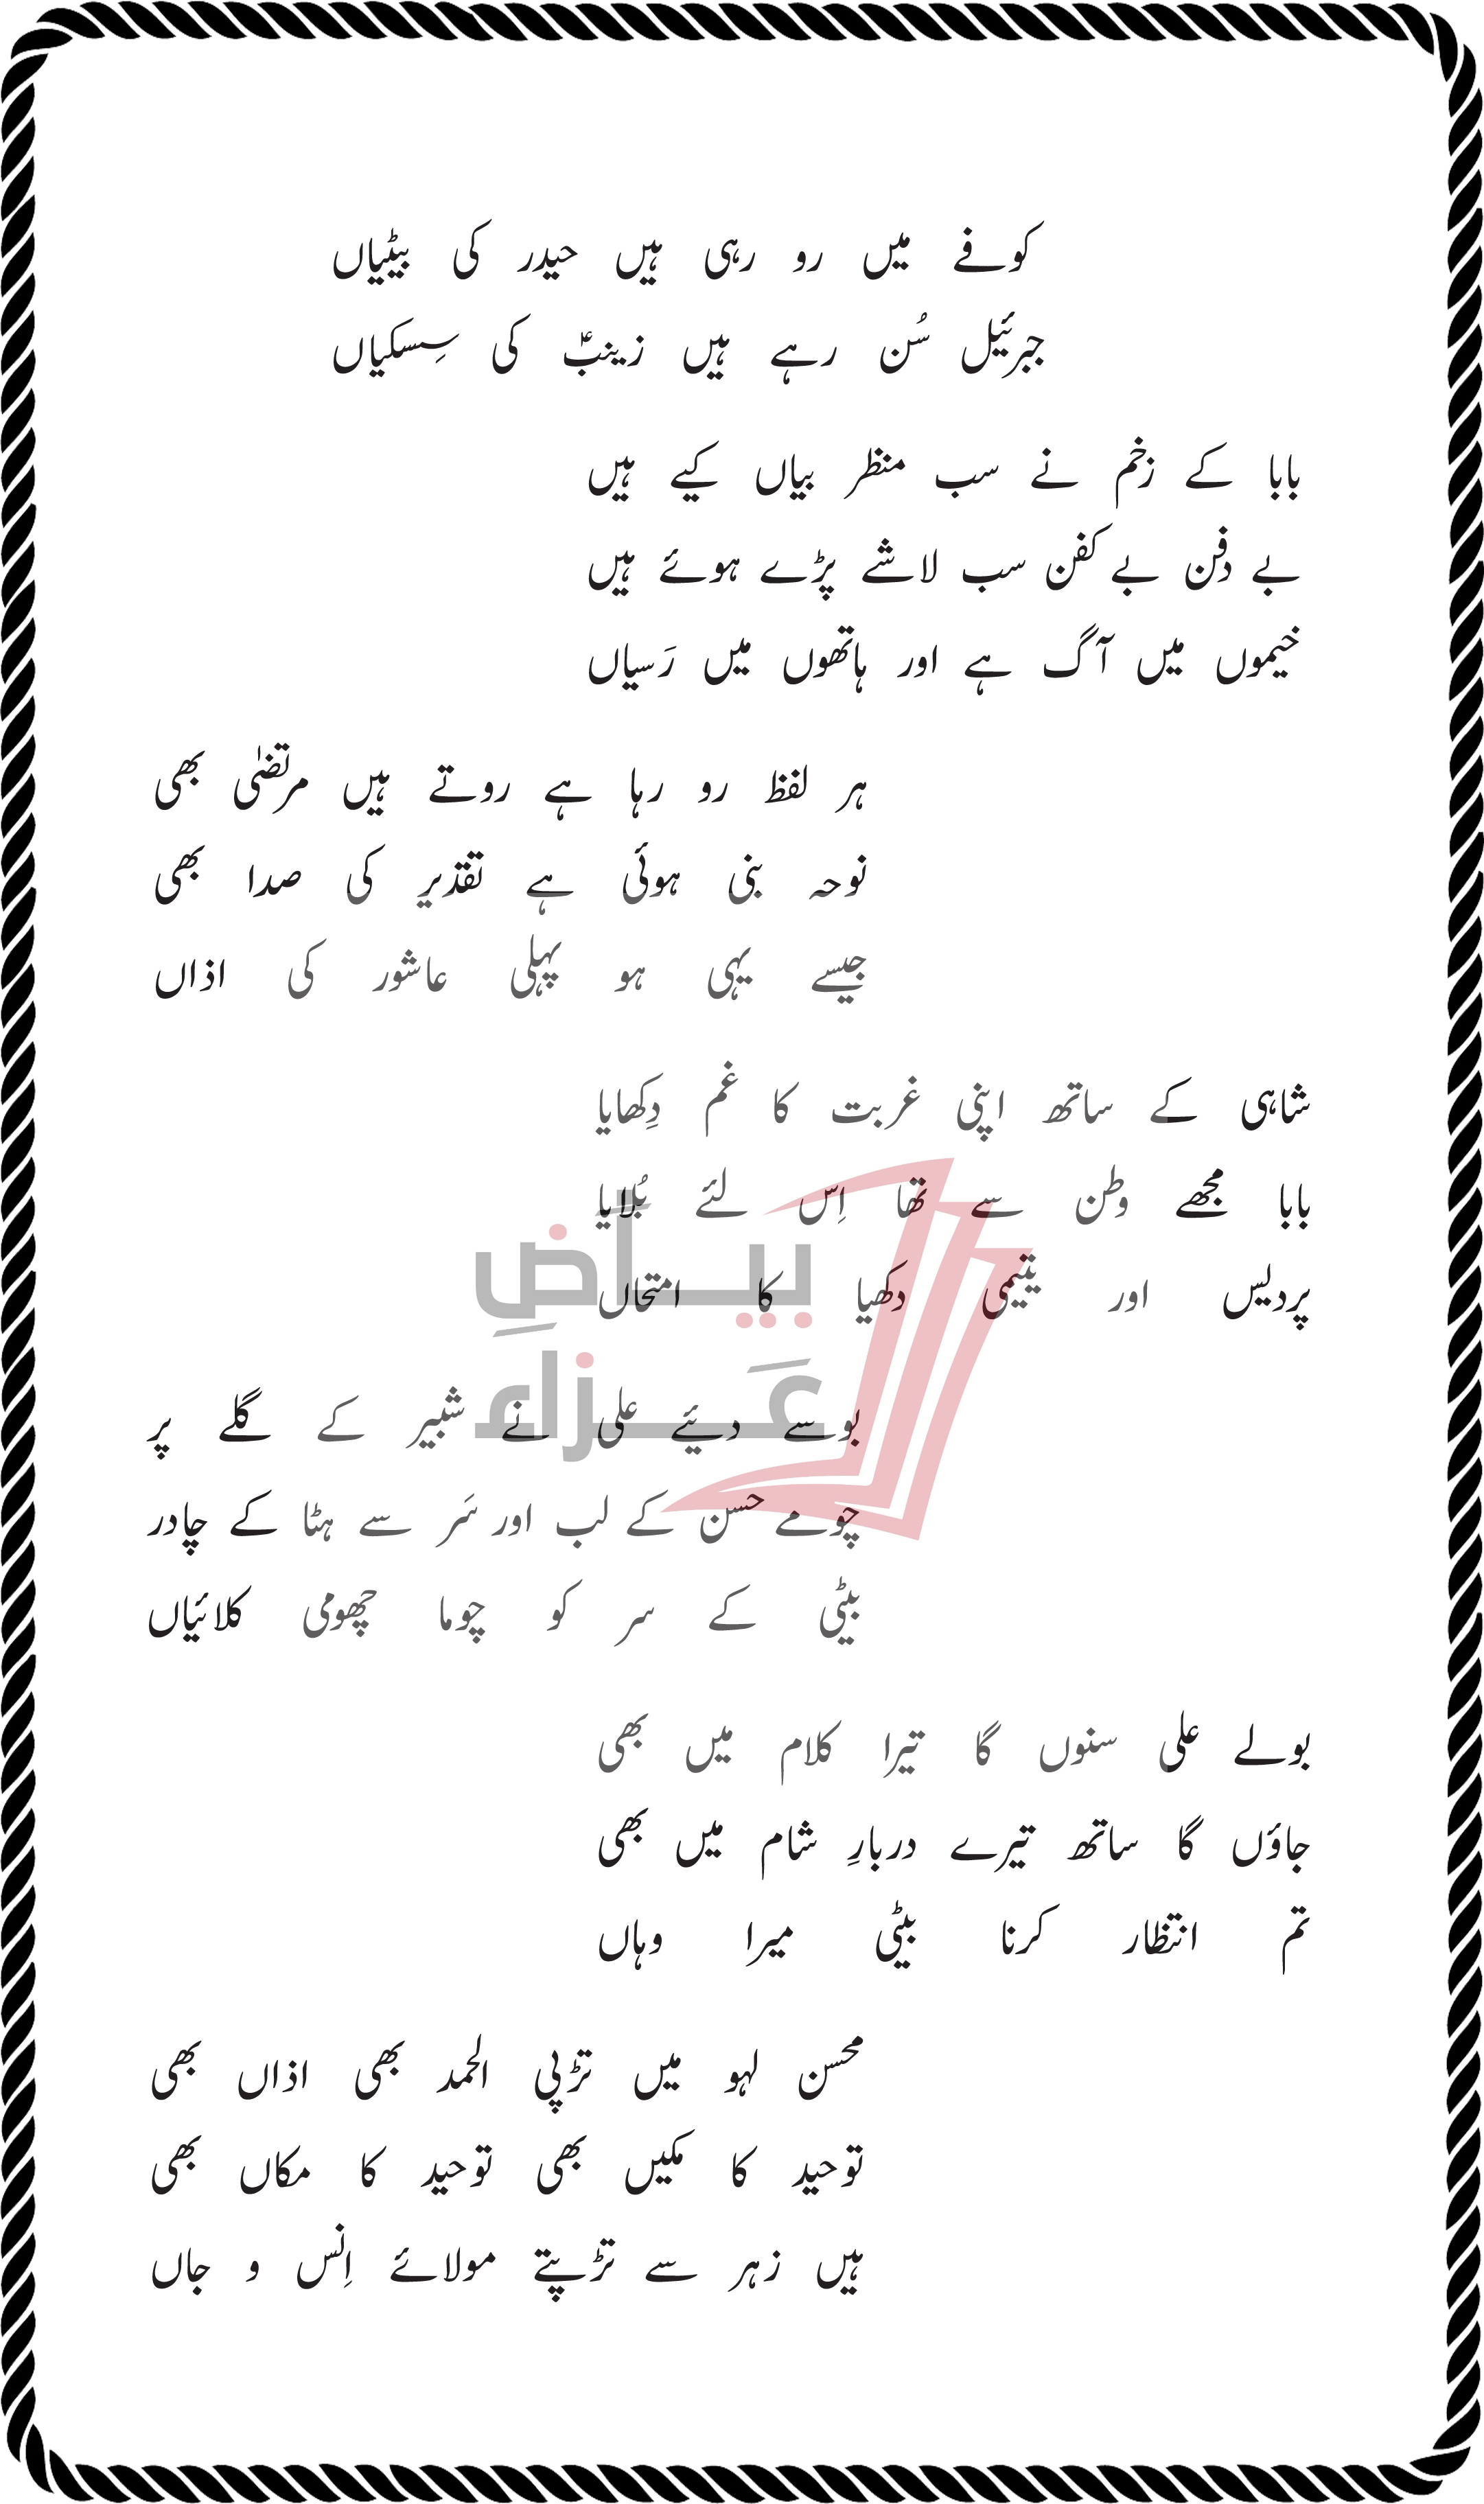 کوفے میں رو رہی ہیں حیدر کی بیٹیاں
جبرئیل سُن رہے ہیں زینبؑ کی سِسکیاں
بابا کے زخم نے سب منظر بیاں کیے ہیں
بے دفن بے کفن سب لاشے پڑے ہوئے ہیں
خیموں میں آگ ہے اور ہاتھوں میں رَسیاں
ہر لفظ رو رہا ہے روتے ہیں مرتضیٰ بھی
نوحہ بنی ہوئی ہے تقدیر کی صدا بھی
جیسے یہی ہو پہلی عاشور کی اذاں
شاہی کے ساتھ اپنی غربت کا غم دِکھایا
بابا مجھے وطن سے تھا اِس لئے بُلایا
پردیس اور یتیمی دکھیا کا امتحاں
بیاضِ
عَزاء
بوسے دیئے علی نے شبیر کے گلے پر
چومے حسن کے لب اور سَر سے ہٹا کے چادر
بیٹی کے سر کو چوما چھومی کلائیاں
بولے علی سنوں گا تیرا کلام میں بھی
جاؤں گا ساتھ تیرے دربارِ شام میں بھی
تم انتظار کرنا بیٹی میرا وہاں
محسن لہو میں تڑپی الحمد بھی اذاں بھی
توحید کا مکیں بھی توحید کا مکاں بھی
ہیں زہر سے تڑپتے مولائے اِنس و جاں